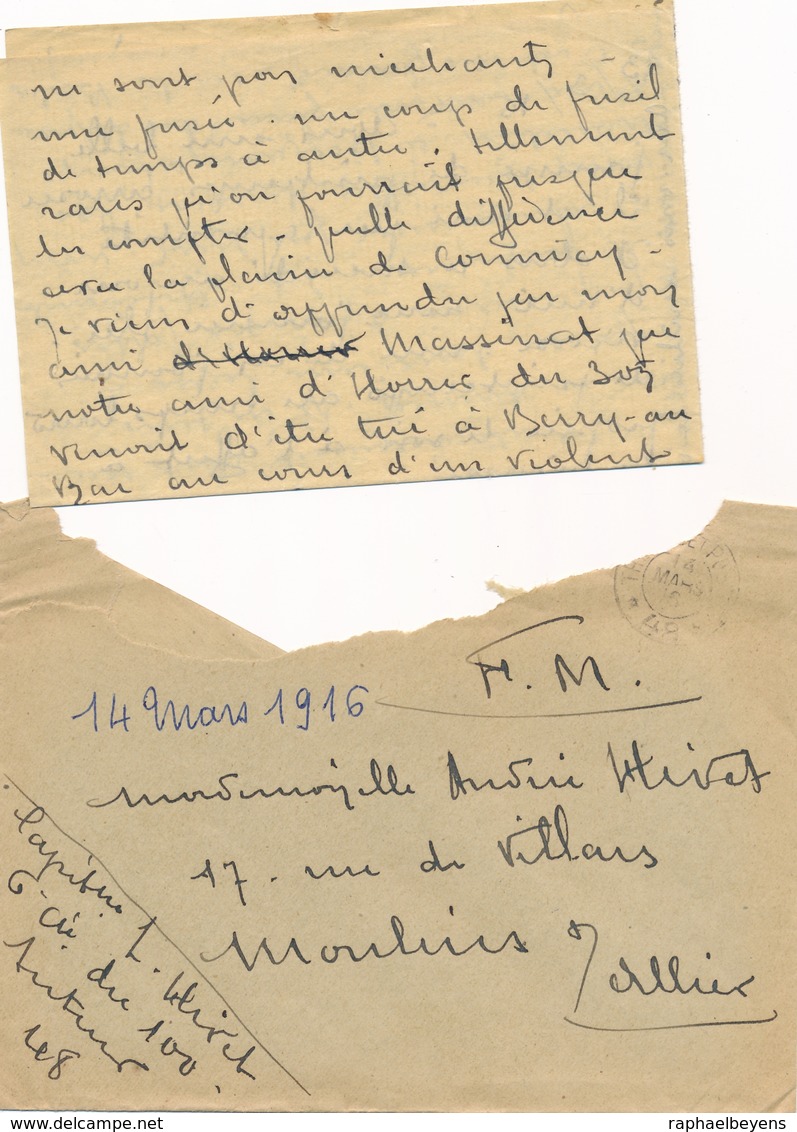 ne sont pas méchants
une fusée. un coup de fusil
de temps à autre. tellement
rares qu'on pourrait presque
les compter. quelle différence
avec la plaine de Cormicy.
Je viens d'apprendre par mon
ami Massinat que
notre ami d'Horrer du 305
venait d'être tué à Berry-au
Bac au cours d'un violent
14
MARS
16
48
F. M.
14 Mars 1916
Mademoiselle Andrée Hivet
17. rue de Villars
Moulins
Allier
Capitaine L. Hivet
6e Cie du 100.
Secteur
148
raphaelbeyens